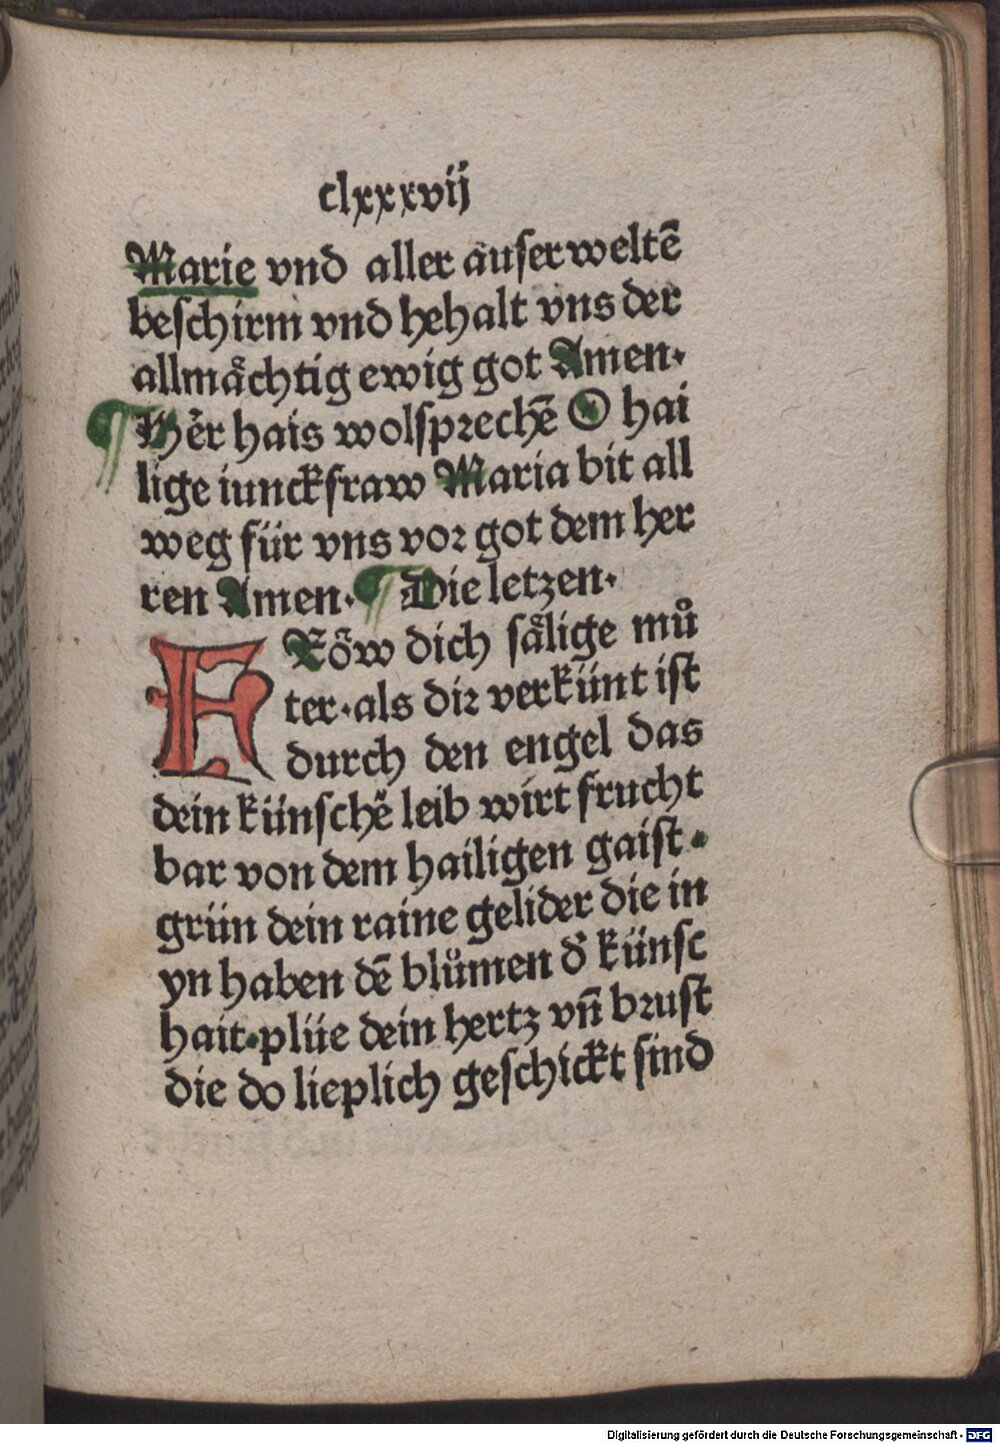 clxxxvij
Marie vnd aller auſerweltē
beſchirm vnd hehalt vns der
allmaͤchtig ewig got Amen.
¶ Hēr hais wolſprechē O hai
lige iunckfraw Maria bit all
weg für vns vor got dem her
ren Amen. ¶ Die letzen.
FRoͤw dich ſaͤlige muͦ
ter.als dir verkünt iſt
durch den engel das
dein künſchē leib wirt frucht
bar von dem hailigen gaiſt.
grün dein raine gelider die in
yn haben dē bluͦmen d' künſc
hait.plüe dein hertz vn̄ bruſt
die do lieplich geſchickt ſind
Digitalisierung gefördert durch die Deutsche Forschungsgemeinschaft - DFG